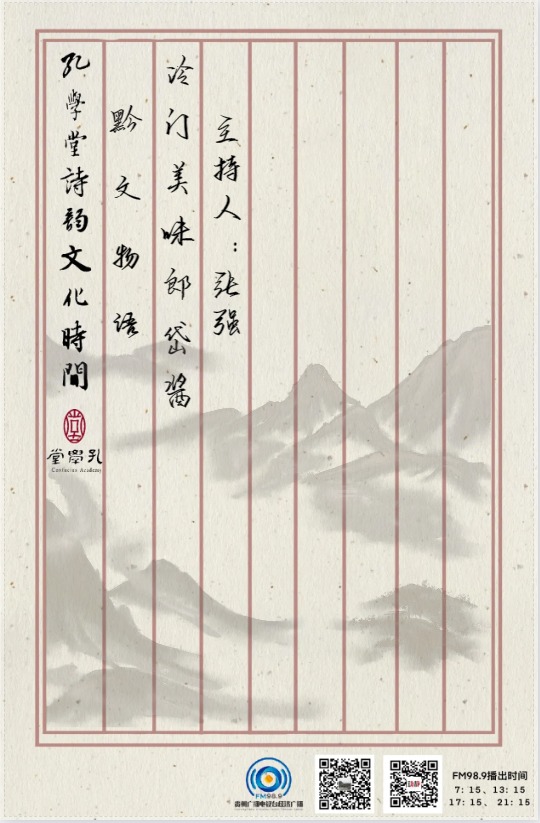 孔學堂詩韵文化時間
黔文物语
冷门美味郎岱酱
主持人：张强
孔學堂
Confucius Academy
FM98.9
贵州广播电视台经济广播
FM98.9播出时间
7: 15、13: 15
17: 15、 21: 15